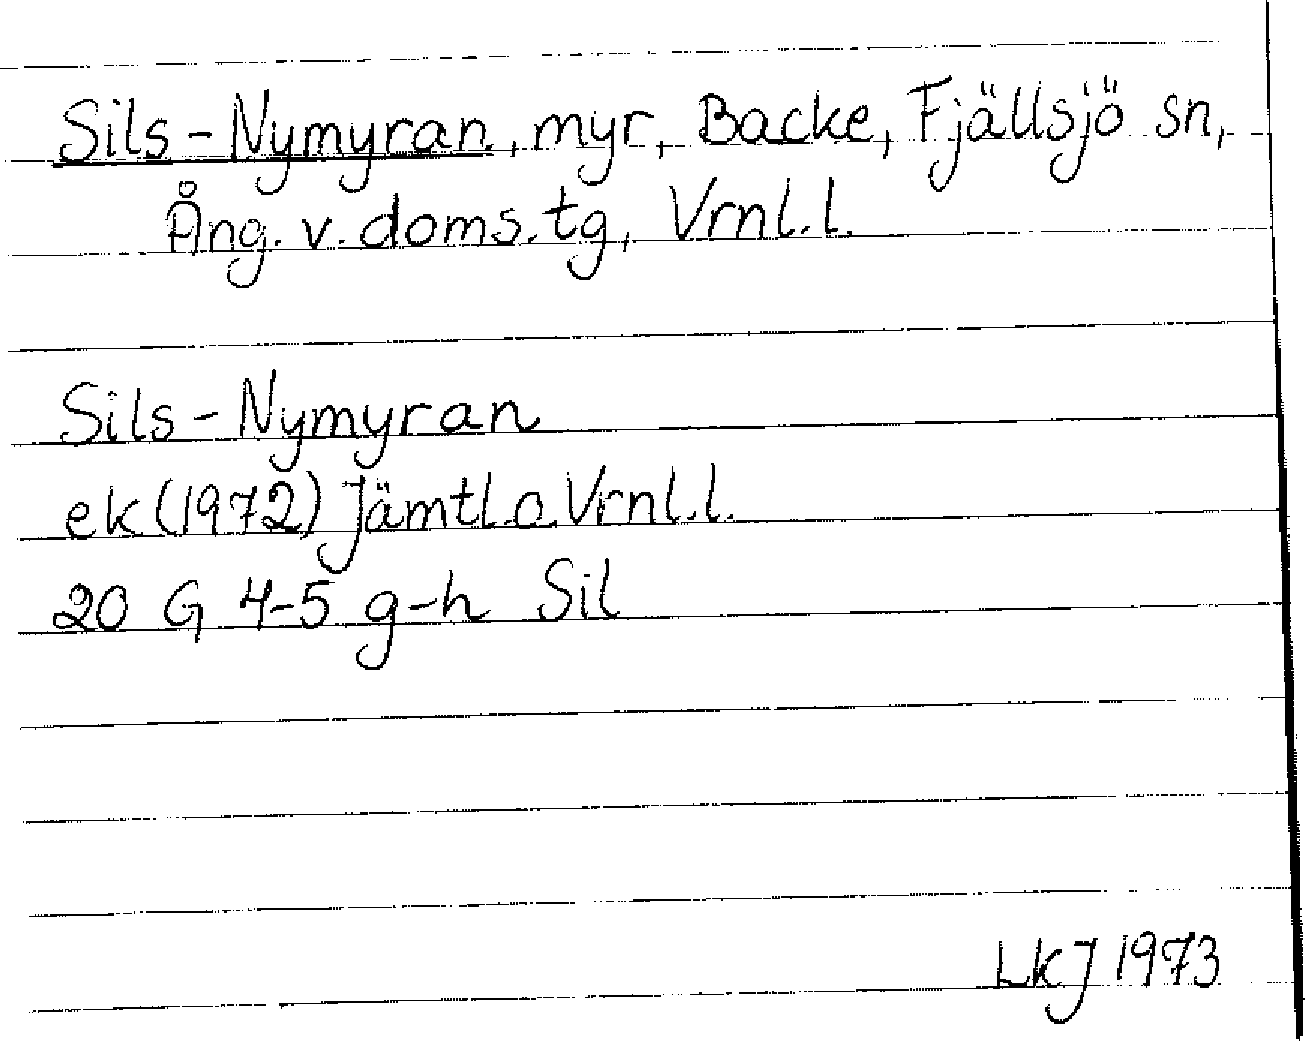 Sils-Nymyran, myr, Backe, Fjällsjö sn,
Ång. v. doms. tg, Vrnl. l.
Sils-Nymyran
ek (1972) Jämtl. o. Vrnl. l.
20 G 4-5 g-h Sil
LKJ 1973